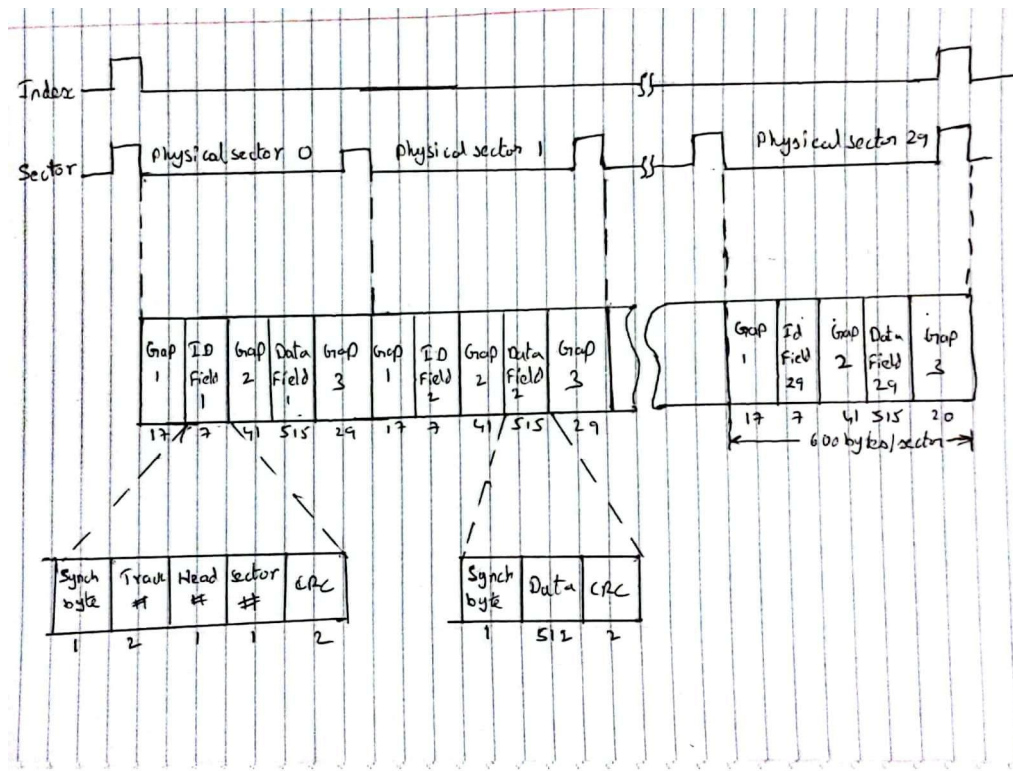 Index
Sector
Physical sector 0
Physical sector 1
Physical sector 29
Gap 1
ID Field 1
Gap 2
Data Field 1
Gap 3
Gap 1
ID Field 2
Gap 2
Data Field 2
Gap 3
Gap 1
Id Field 29
Gap 2
Data Field 29
Gap 3
17 7 41 515 29 17 7 41 515 29
17 7 41 515 20
600 bytes/sector
Synch byte
Track #
Head #
Sector #
CRC
1 2 1 1 2
Synch byte
Data
CRC
1 512 2